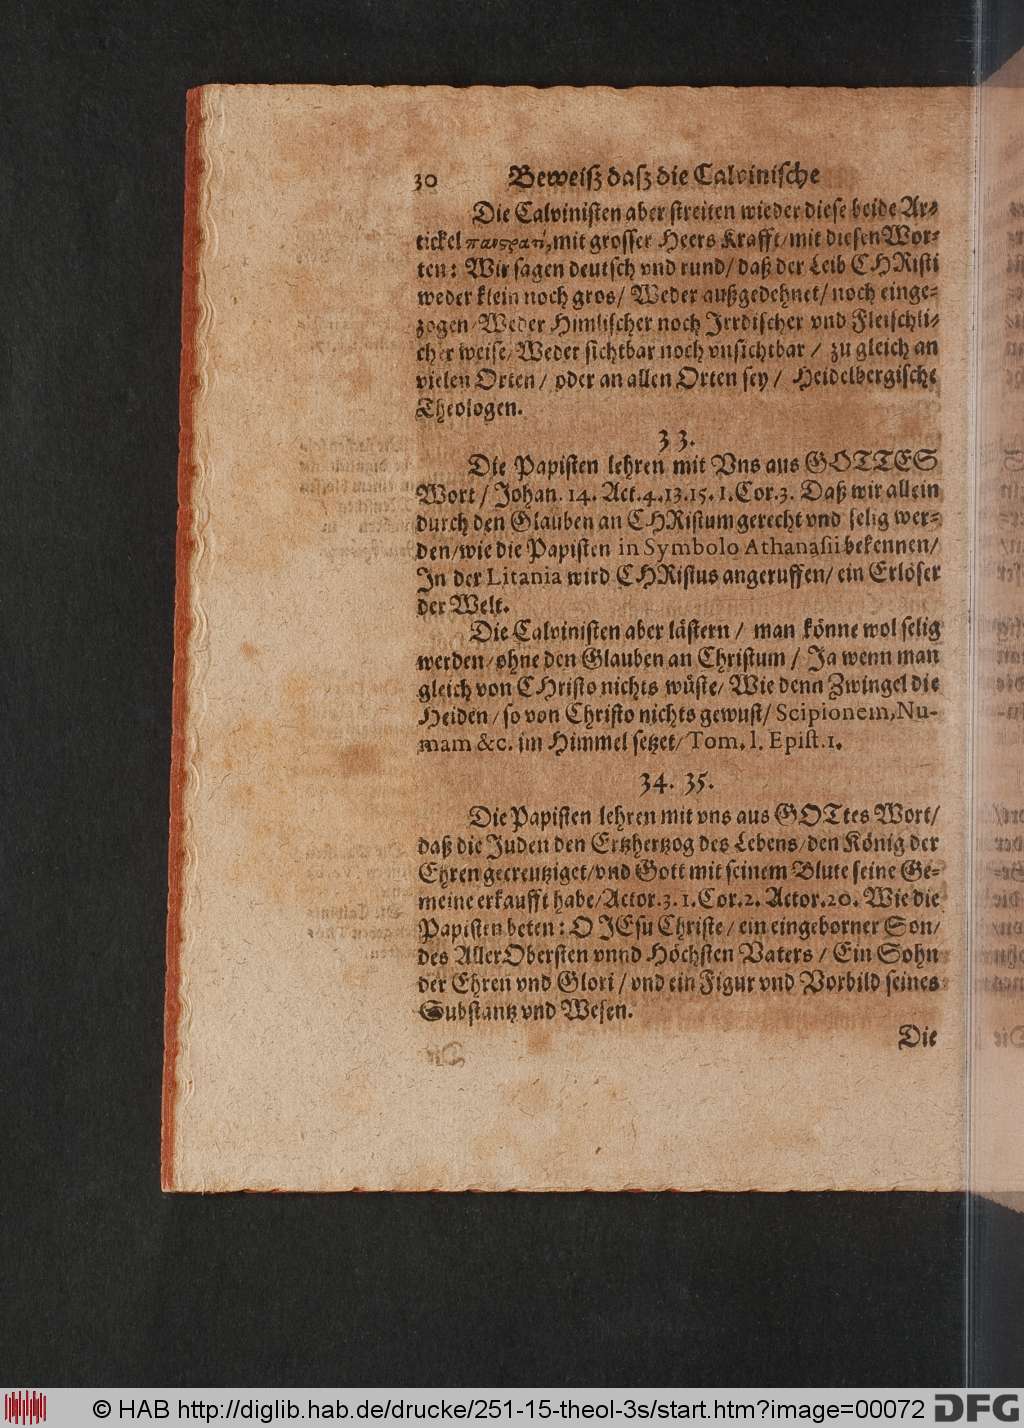 30 Beweiß daß die Calvinische
Die Calvinisten aber streiten wieder diese beide Ar⸗
tickel mit grosser Heers Krafft/mit diesen Wor⸗
ten: Wir sagen deutsch vnd rund/daß der Leib CHRisti
weder klein noch gros/ Weder außgedehnet/noch einge⸗
zogen/Weder Himlischer noch Jrrdischer vnd Fleischli⸗
cher weise/Weder sichtbar noch vnsichtbar / zu gleich an
vielen Orten / oder an allen Orten sey / Heidelbergische
Theologen.
33.
Die Papisten lehren mit Vns aus GOTTES
Wort / Johan. 14. Act.4.13.15. 1.Cor.3. Daß wir allein
durch den Glauben an CHRistum gerecht vnd selig wer⸗
den/wie die Papisten in Symbolo Athanasii bekennen/
Jn der Litania wird CHRistus angeruffen/ ein Erlöser
der Welt.
Die Calvinisten aber lästern / man könne wol selig
werden/ohne den Glauben an Christum / Ja wenn man
gleich von CHristo nichts wüste/ Wie denn Zwingel die
Heiden/so von Christo nichts gewust/ Scipionem, Nu-
mam &c. im Himmel setzet/Tom. 1. Epist.1.
34. 35.
Die Papisten lehren mit vns aus GOTtes Wort/
daß die Juden den Ertzhertzog des Lebens/den König der
Ehren gecreutziget/vnd Gott mit seinem Blute seine Ge⸗
meine erkaufft habe/Actor.3. 1.Cor.2. Actor.20. Wie die
Papisten beten: O JEsu Christe/ein eingeborner Son/
des AllerObersten vnnd Höchsten Vaters / Ein Sohn
der Ehren vnd Glori / vnd ein Figur vnd Vorbild seines
Substantz vnd Wesen.
Die
© HAB http://diglib.hab.de/drucke/251-15-theol-3s/start.htm?image=00072 DFG